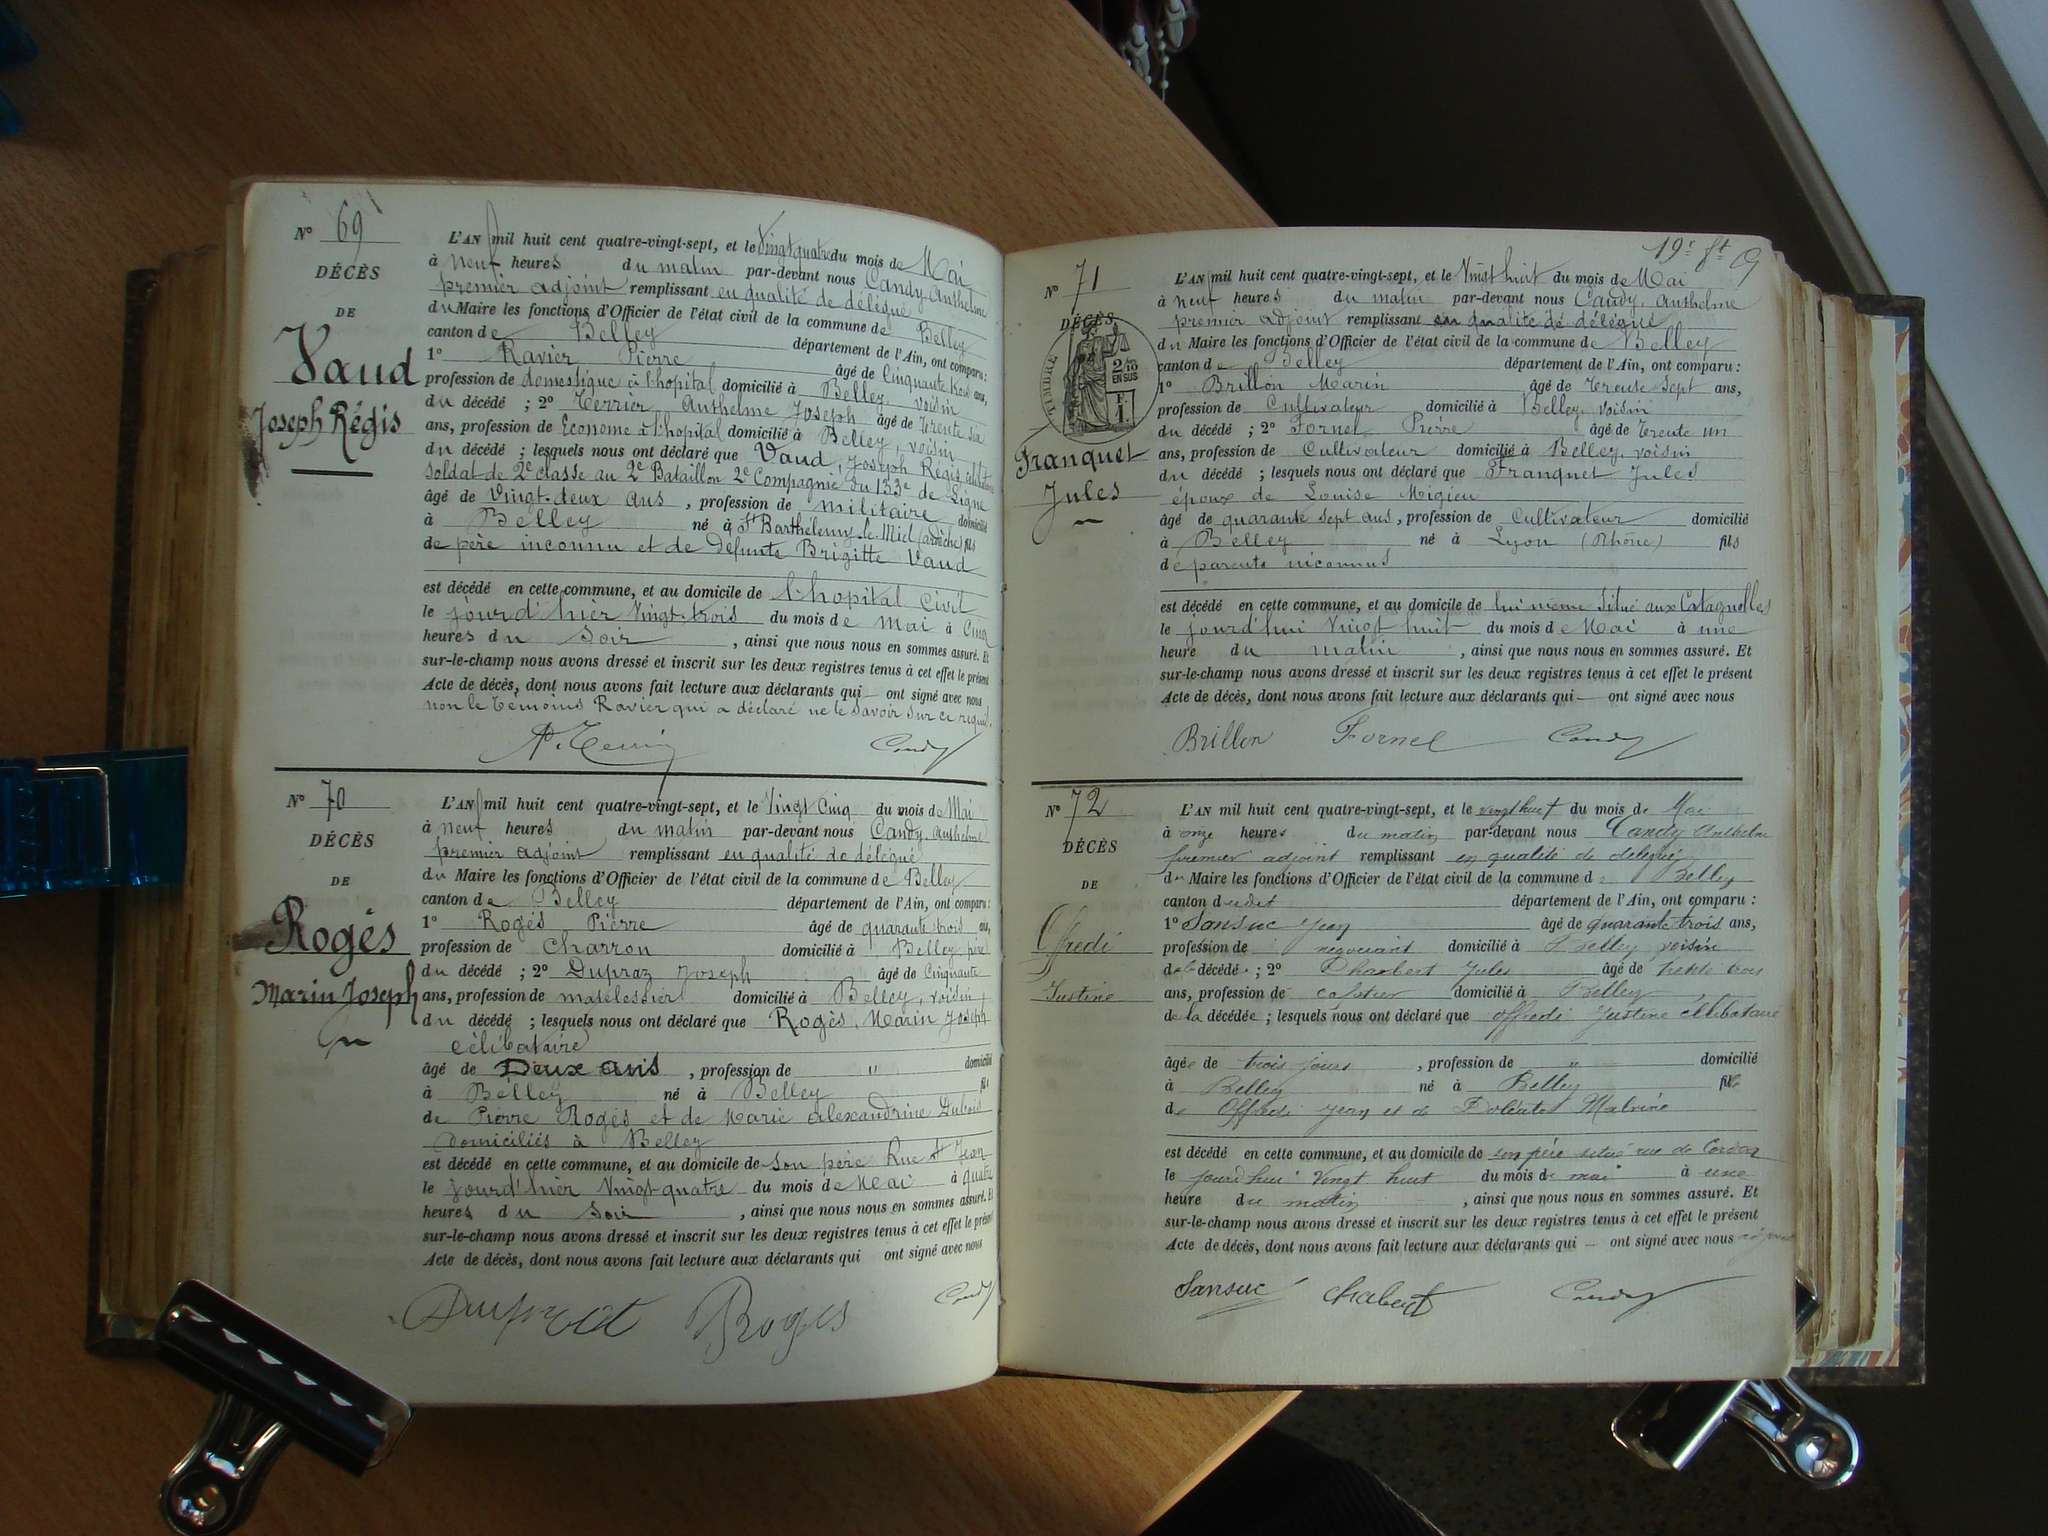 N° 69
DÉCÈS
DE
Vaud
Joseph Régis
L'AN mil huit cent quatre-vingt-sept, et le Vingt quatre du mois de Mai
à neuf heures du matin par-devant nous Candy, Anthelme
premier adjoint remplissant en qualité de délégué
du Maire les fonctions d'Officier de l'état civil de la commune de Belley
canton de Belley département de l'Ain, ont comparu :
1° Ravier Pierre âgé de Cinquante trois ans,
profession de domestique à l'hopital domicilié à Belley, voisin
du décédé ; 2° Terrier Anthelme Joseph âgé de Trente six
ans, profession de Econome à l'hopital domicilié à Belley, voisin
du décédé ; lesquels nous ont déclaré que Vaud, Joseph Régis, célibataire
Soldat de 2e classe au 2e Bataillon 2e Compagnie du 133e de Ligne
âgé de Vingt-deux ans, profession de militaire domicilié
à Belley né à St Barthélemy-le-Miel (ardèche) fils
de père inconnu et de défunte Brigitte Vaud
est décédé en cette commune, et au domicile de l'hopital Civil
le jourd'hier Vingt-trois du mois de mai à Cinq
heures du Soir, ainsi que nous nous en sommes assuré. Et
sur-le-champ nous avons dressé et inscrit sur les deux registres tenus à cet effet le présent
Acte de décès, dont nous avons fait lecture aux déclarants qui — ont signé avec nous
non le Témoins Ravier qui a déclaré ne le savoir sur ce requis.
Candy
N° 70
DÉCÈS
DE
Rogès
Marin Joseph
L'AN mil huit cent quatre-vingt-sept, et le Vingt Cinq du mois de Mai
à neuf heures du matin par-devant nous Candy, Anthelme
premier adjoint remplissant en qualité de délégué
du Maire les fonctions d'Officier de l'état civil de la commune de Belley
canton de Belley département de l'Ain, ont comparu :
1° Rogès Pierre âgé de quarante trois ans,
profession de Charron domicilié à Belley, père
du décédé ; 2° Dupraz Joseph âgé de Cinquante
ans, profession de matelessier domicilié à Belley, voisin
du décédé ; lesquels nous ont déclaré que Rogès, Marin Joseph
célibataire
âgé de Deux ans, profession de " domicilié
à Belley né à Belley fils
de Pierre Rogès et de Marie Alexandrine Dubois
Domiciliés à Belley
est décédé en cette commune, et au domicile de son père Rue St Jean
le jourd'hier Vingt-quatre du mois de Mai à quatre
heures du Soir, ainsi que nous nous en sommes assuré. Et
sur-le-champ nous avons dressé et inscrit sur les deux registres tenus à cet effet le présent
Acte de décès, dont nous avons fait lecture aux déclarants qui ont signé avec nous
Rogès Candy
19e ft
N° 71
DÉCÈS
TIMBRE
2/10
EN SUS
F.
1.
Franquet
Jules
L'AN mil huit cent quatre-vingt-sept, et le Vingt huit du mois de Mai
à neuf heures du matin par-devant nous Candy, Anthelme
premier adjoint remplissant en qualité de délégué
du Maire les fonctions d'Officier de l'état civil de la commune de Belley
canton de Belley département de l'Ain, ont comparu :
1° Brillon Marin âgé de Trente Sept ans,
profession de Cultivateur domicilié à Belley, voisin
du décédé ; 2° Fornel Pierre âgé de Trente un
ans, profession de Cultivateur domicilié à Belley, voisin
du décédé ; lesquels nous ont déclaré que Franquet Jules
époux de Louise Migieu
âgé de quarante sept ans, profession de Cultivateur domicilié
à Belley né à Lyon (Rhône) fils
de parents inconnus
est décédé en cette commune, et au domicile de lui même Situé aux Catagnolles
le jourd'hui Vingt huit du mois de Mai à une
heure du matin, ainsi que nous nous en sommes assuré. Et
sur-le-champ nous avons dressé et inscrit sur les deux registres tenus à cet effet le présent
Acte de décès, dont nous avons fait lecture aux déclarants qui — ont signé avec nous
Brillon Fornel Candy
N° 72
DÉCÈS
DE
Offredi
Justine
L'AN mil huit cent quatre-vingt-sept, et le vingt huit du mois de Mai
à onze heures du matin par-devant nous Candy Anthelme
premier adjoint remplissant en qualité de délégué
du Maire les fonctions d'Officier de l'état civil de la commune de Belley
canton dudit département de l'Ain, ont comparu :
1° Sansuc Jean âgé de quarante trois ans,
profession de negociant domicilié à Belley voisin
de la décédée ; 2° Chabert Jules âgé de trente trois
ans, profession de cafetier domicilié à Belley
de la décédée ; lesquels nous ont déclaré que Offredi Justine célibataire
âgée de trois jours, profession de " domicilié
à Belley né à Belley fille
de Offredi Jean et de Malvine
est décédé en cette commune, et au domicile de son père situé rue de Cordon
le jourd'hui Vingt huit du mois de mai à une
heure du matin, ainsi que nous nous en sommes assuré. Et
sur-le-champ nous avons dressé et inscrit sur les deux registres tenus à cet effet le présent
Acte de décès, dont nous avons fait lecture aux déclarants qui — ont signé avec nous
Sansuc Chabert Candy